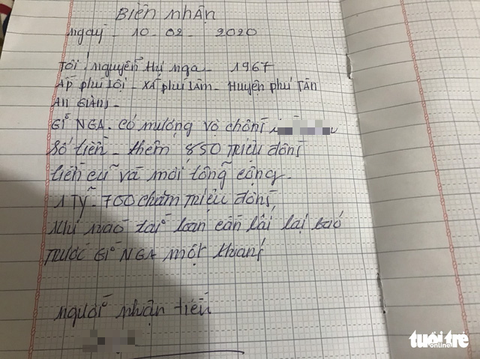 Biên nhận
ngày - 10 - 02 - 2020
Tôi - nguyễn Hư nga - 1967
Ấp phú lợi - Xã phú Lâm - Huyện phú Tân
An Giang -
Gì NGA. có mượng vô chồng
Số tiền - thêm 850 triệu đồng
tiền cũ và mới tổng cộng.
1 Tỷ - 700 chăm triệu đồng,
khi nào tôi cần lấy lại báo
trước Gì NGA một tháng
người nhận tiền
tuổi trẻ
online